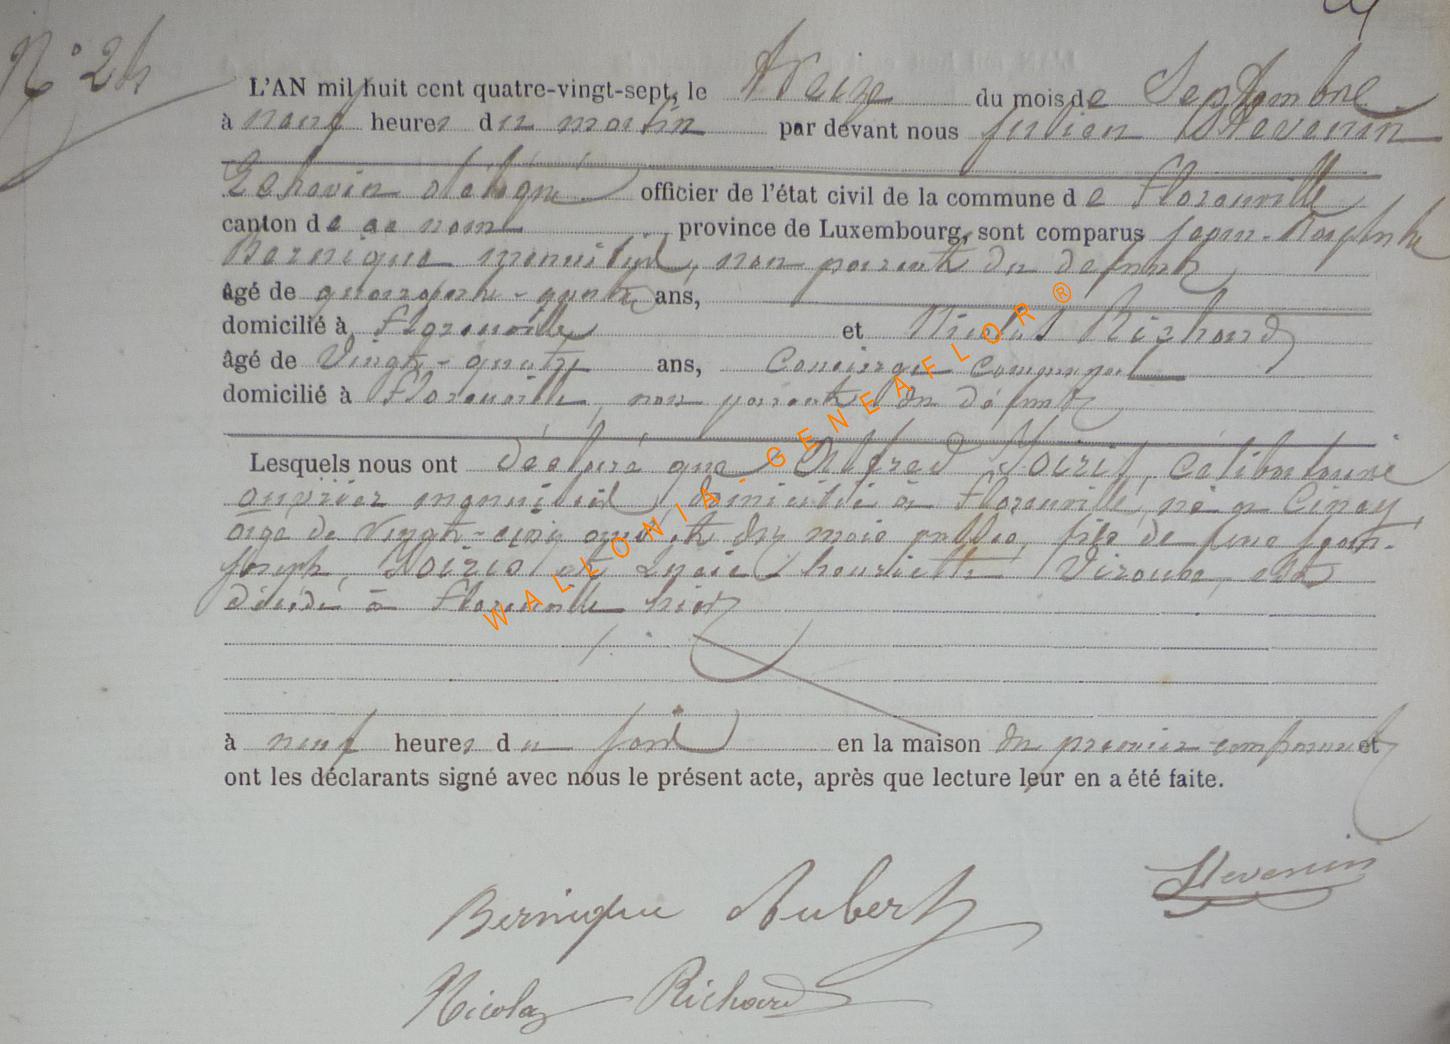 N° 24
L'AN mil huit cent quatre-vingt-sept, le treize du mois de Septembre
à neuf heures du matin par devant nous Julien Stevenin
Echevin délégué officier de l'état civil de la commune de Florenville
canton de ce nom province de Luxembourg, sont comparus Jean-
Bernique menuisier, non parent du défunt,
âgé de quarante- ans,
domicilié à Florenville et Nicolas Richard
âgé de Vingt-quatre ans, Concierge communal
domicilié à Florenville, non parent du défunt
Lesquels nous ont déclaré que Alfred Noiris, Célibataire
ouvrier menuisier domicilié à Florenville, né à Ciney,
âgé de Vingt-cinq ans et dix mois passés, fils de feu Jean-
Joseph, Noiris et Henriette est
décédé à Florenville hier
à neuf heures du soir en la maison du premier comparant et
ont les déclarants signé avec nous le présent acte, après que lecture leur en a été faite.
Stevenin
Bernique Hubert
Nicolas Richard
WALLONIA-GENEAFLOR®